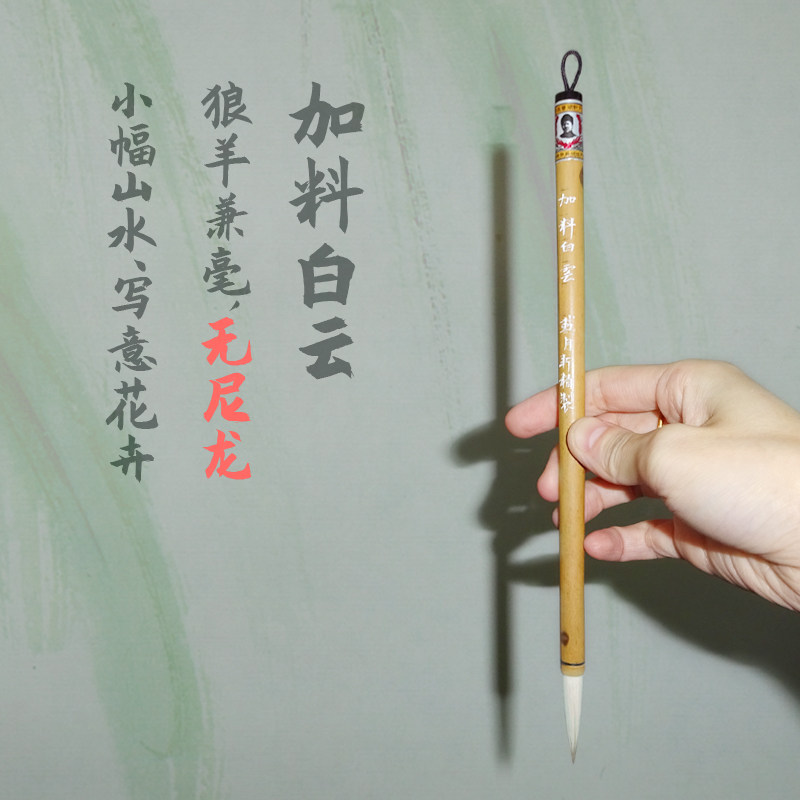 加料白云
狼羊兼毫,无尼龙
小幅山水、写意花卉
加料白雲